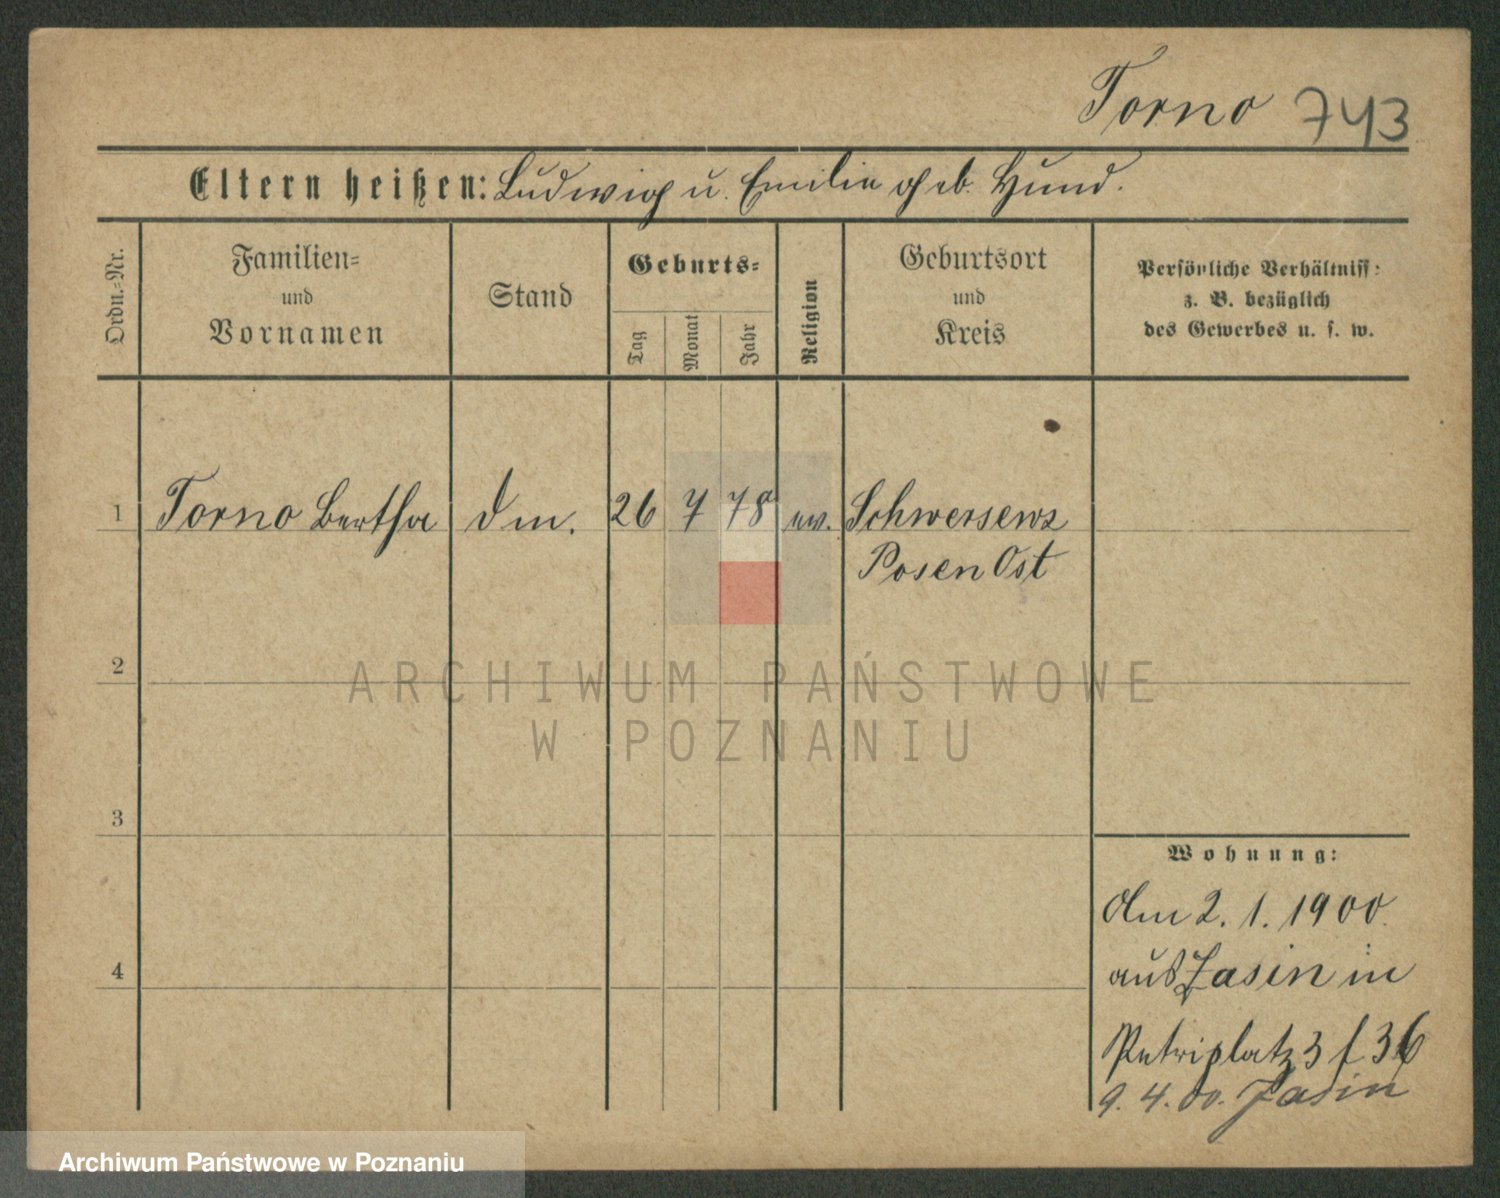 Torno 743
Eltern heißen: Ludwig u. Emilie geb. Hund.
Ordn.-Nr.
Familien-
und
Vornamen
Stand
Geburts-
Tag
Monat
Jahr
Religion
Geburtsort
und
Kreis
Persönliche Verhältniss:
z. B. bezüglich
des Gewerbes u. s. w.
1 Torno Bertha dm. 26 7 78 ev. Schwersenz
Posen Ost
2
ARCHIWUM PAŃSTWOWE
W POZNANIU
3
Wohnung:
dm 2. 1. 1900.
4
aus Jasin in
Petriplatz 3 f 36
9. 4. 00. Jasin
Archiwum Państwowe w Poznaniu